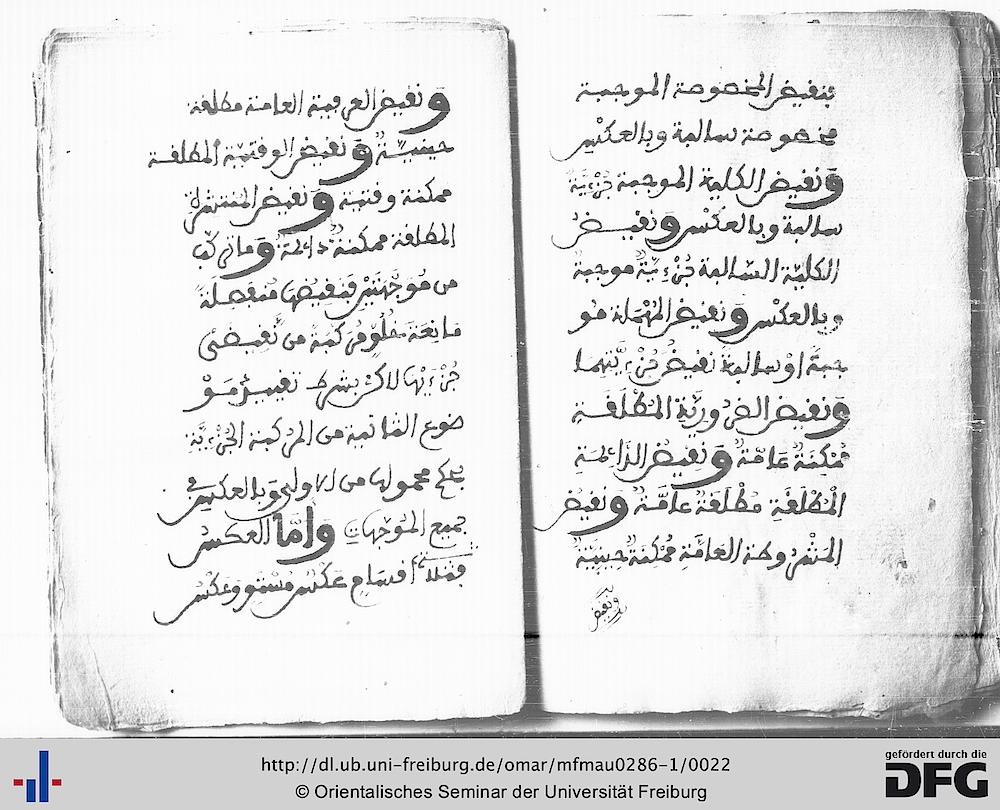 فنقيض المخصوصة الموجبة
مخصوصة سالبة وبالعكس
ونقيض الكلية الموجبة جزءية
سالبة وبالعكس ونقيض
الكلية السالبة جزءية موجبة
وبالعكس ونقيض المهملة مو
جبة او سالبة نقيض جزءيتهما
ونقيض الضرورية المطلقة
ممكنة عامة ونقيض الدائمة
المطلقة مطلقة عامة ونقيض
المشروطة العامة ممكنة حينية
ونقيض
ونقيض العرفية العامة مطلقة
حينية ونقيض الوقتية المطلقة
ممكنة وقتية ونقيض المنتشرة
المطلقة ممكنة دائمة وما تركب
من موجهتين فنقيضها منفصلة
مانعة خلو مركبة من نقيضي
جزءيها لاكن بشرط تقييد مو
ضوع الثانية من المركبة الجزءية
بحكم محمولها من الاولى وبالعكس في
جميع الموجهات واما العكس
فثلاثة اقسام عكس مستو وعكس
http://dl.ub.uni-freiburg.de/omar/mfmau0286-1/0022
© Orientalisches Seminar der Universität Freiburg
gefördert durch die
DFG